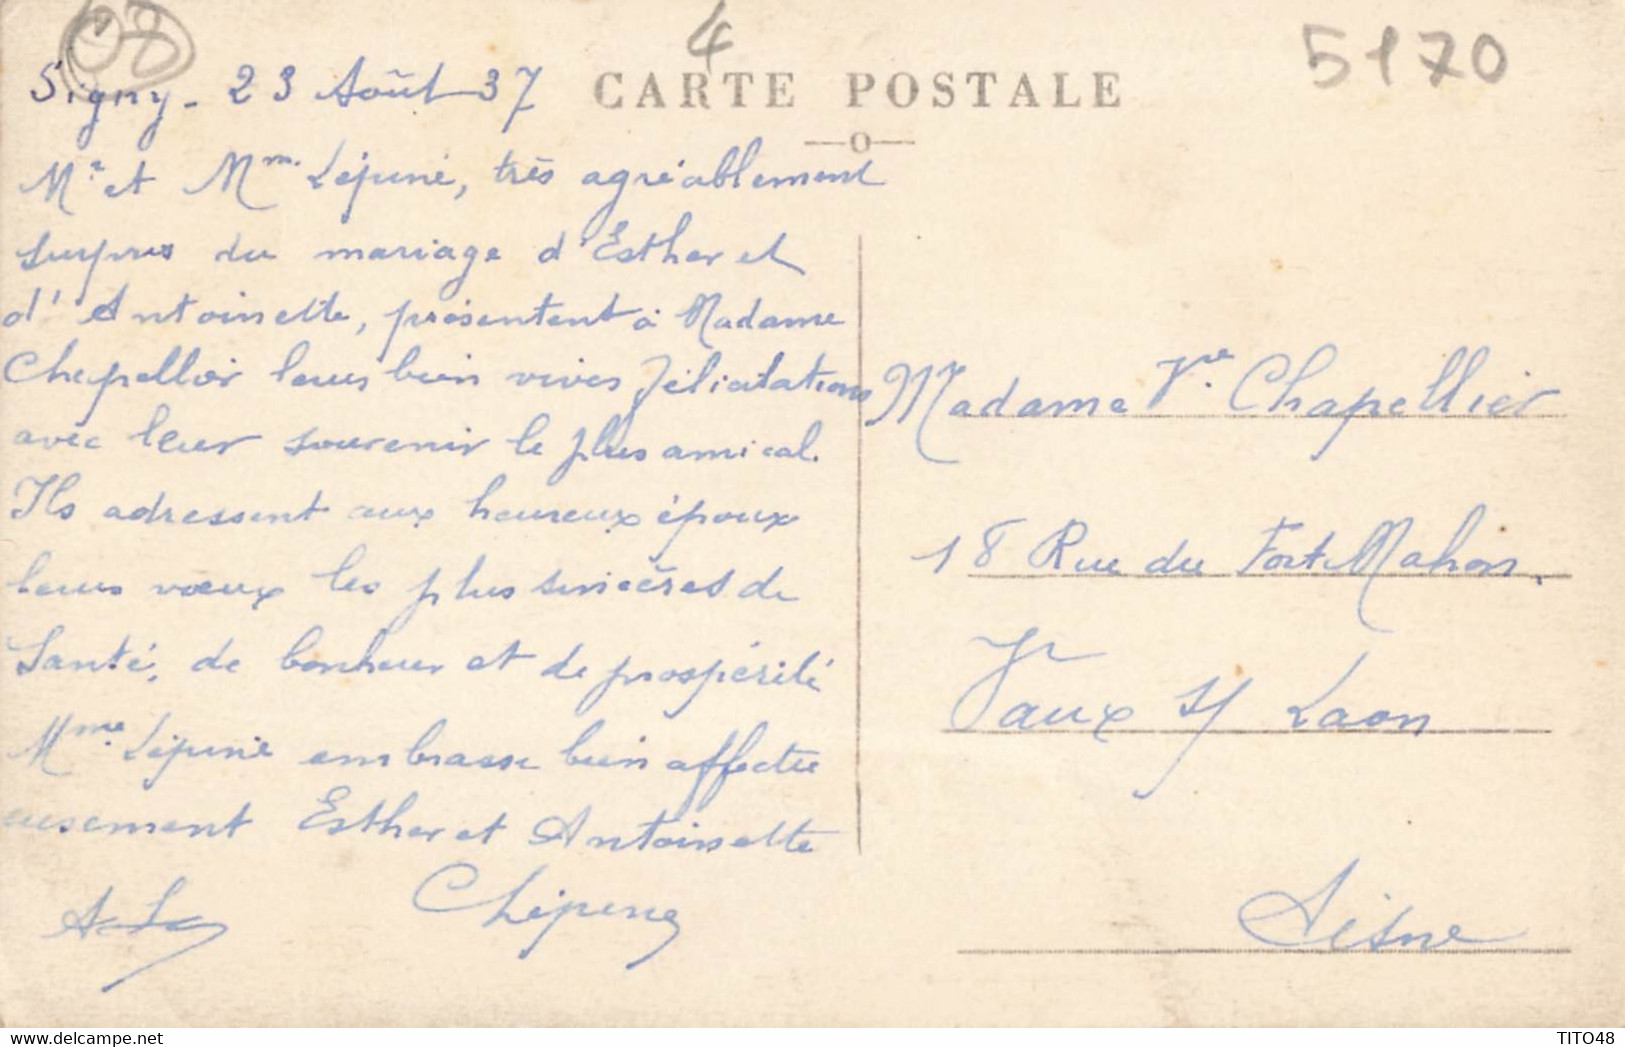 08
4
5170
CARTE POSTALE
Signy - 23 Août 37
Mr et Mme Lépine, très agréablement
surpris du mariage d'Esther et
d'Antoinette, présentent à Madame
Chapellier leurs bien vives félicitations
avec leur souvenir le plus amical.
Ils adressent aux heureux époux
leurs vœux les plus sincères de
Santé, de bonheur et de prospérité
Mme Lépine embrasse bien affectu
eusement Esther et Antoinette
Madame Vve Chapellier
18 Rue du Fort Mahon.
Vaux s/ Laon
Aisne
TITO48
http://www.delcampe.net